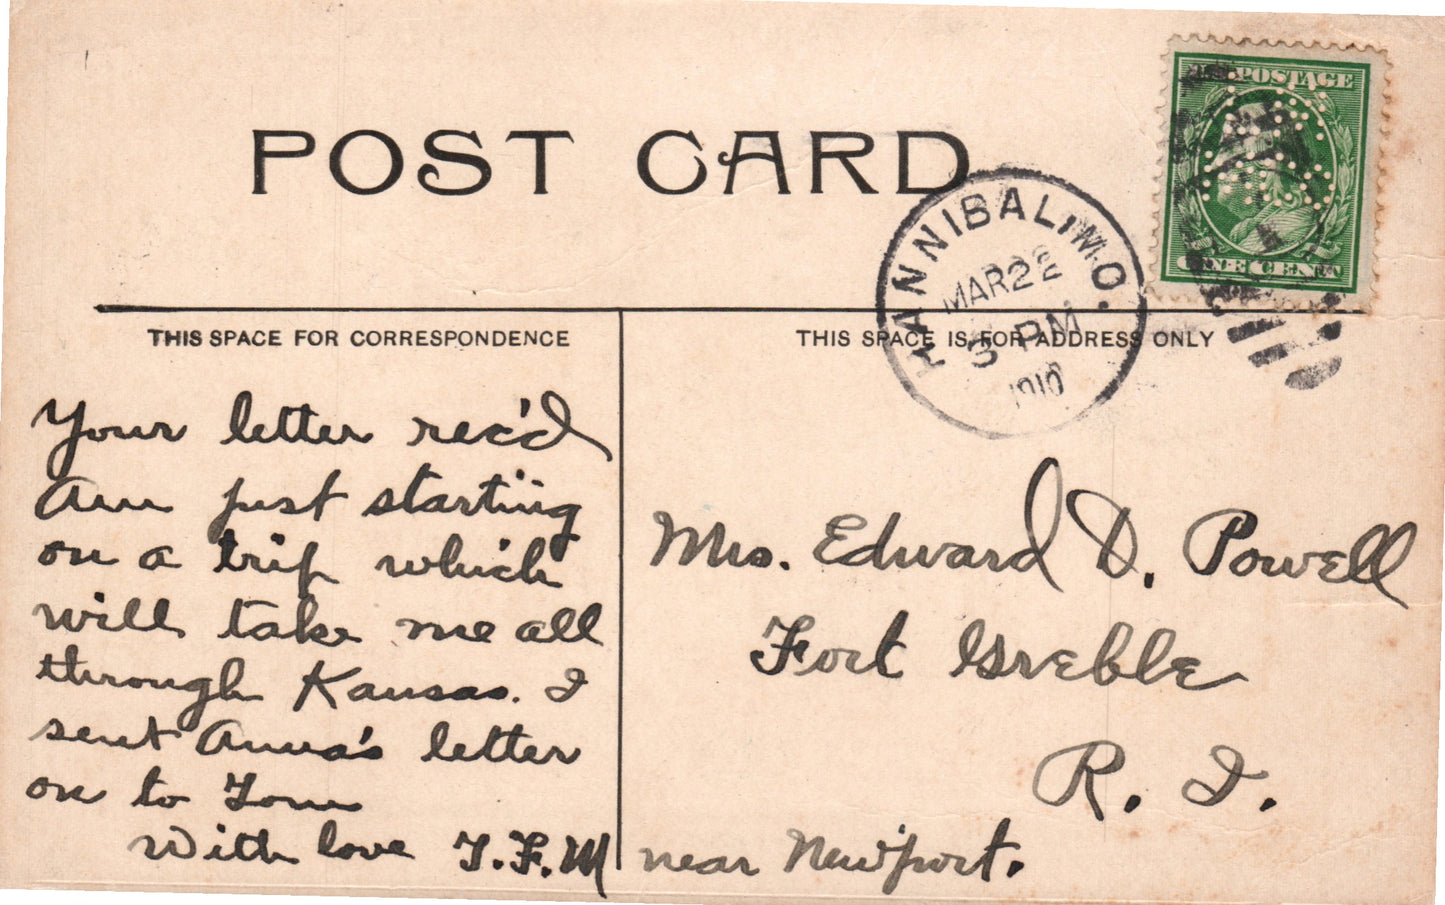 POST CARD
POSTAGE
ONE CENT
HANNIBAL, MO.
MAR 28
3 PM
1910
THIS SPACE FOR CORRESPONDENCE
THIS SPACE IS FOR ADDRESS ONLY
Your letter rec'd
Am just starting
on a trip which
will take me all
through Kansas. I
sent Anna's letter
on to Tom
With love T.F.M
Mrs. Edward D. Powell
Fort Greble
R. I.
near Newport.